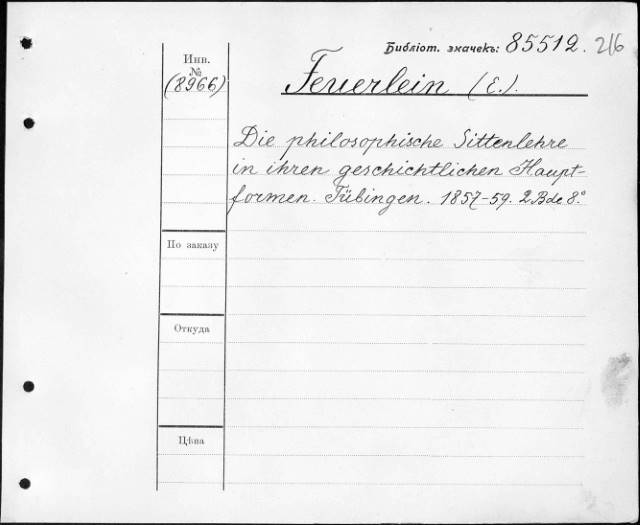 Библіот. значекъ: 85512. 216
Инв.
№
(8966)
Feuerlein (E.).
Die philosophische Sittenlehre
in ihren geschichtlichen Haupt-
formen. Tübingen. 1857-59. 2 Bde 8.°
По заказу
Откуда
Цѣна